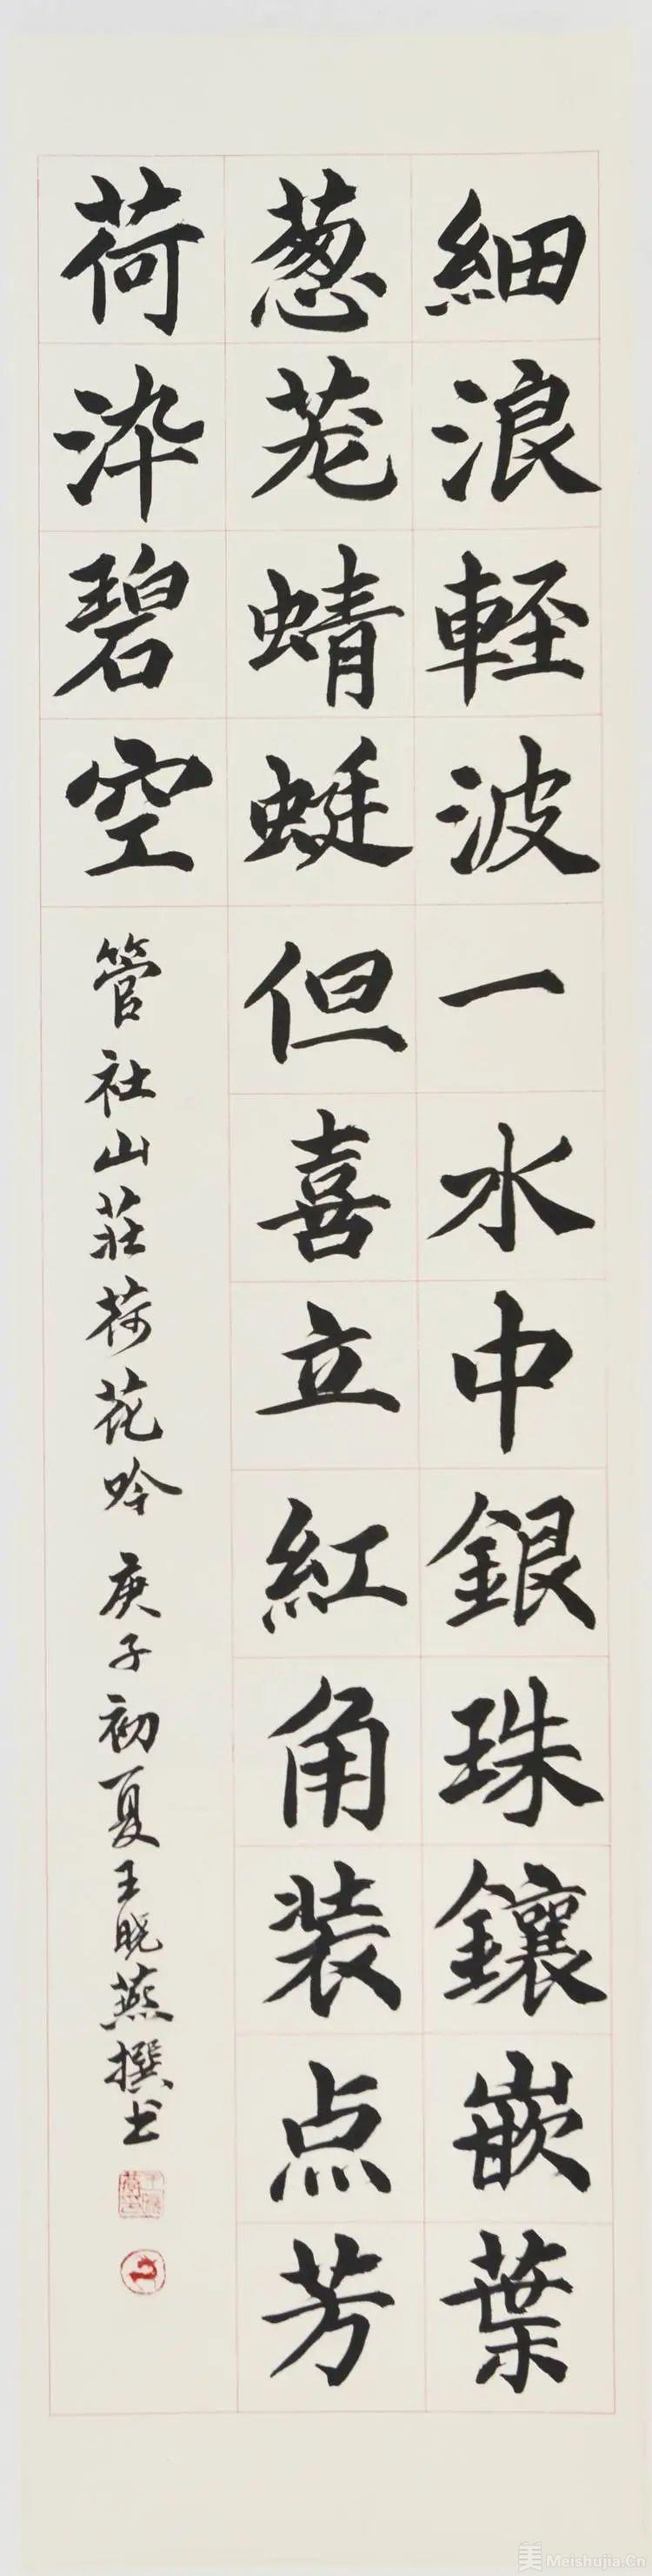 細浪輕波一水中銀珠鑲嵌葉
葱茏蜻蜓但喜立紅角装点芳
荷染碧空
管社山莊荷花吟 庚子初夏王晓燕撰书
美 Meishujia.Cn